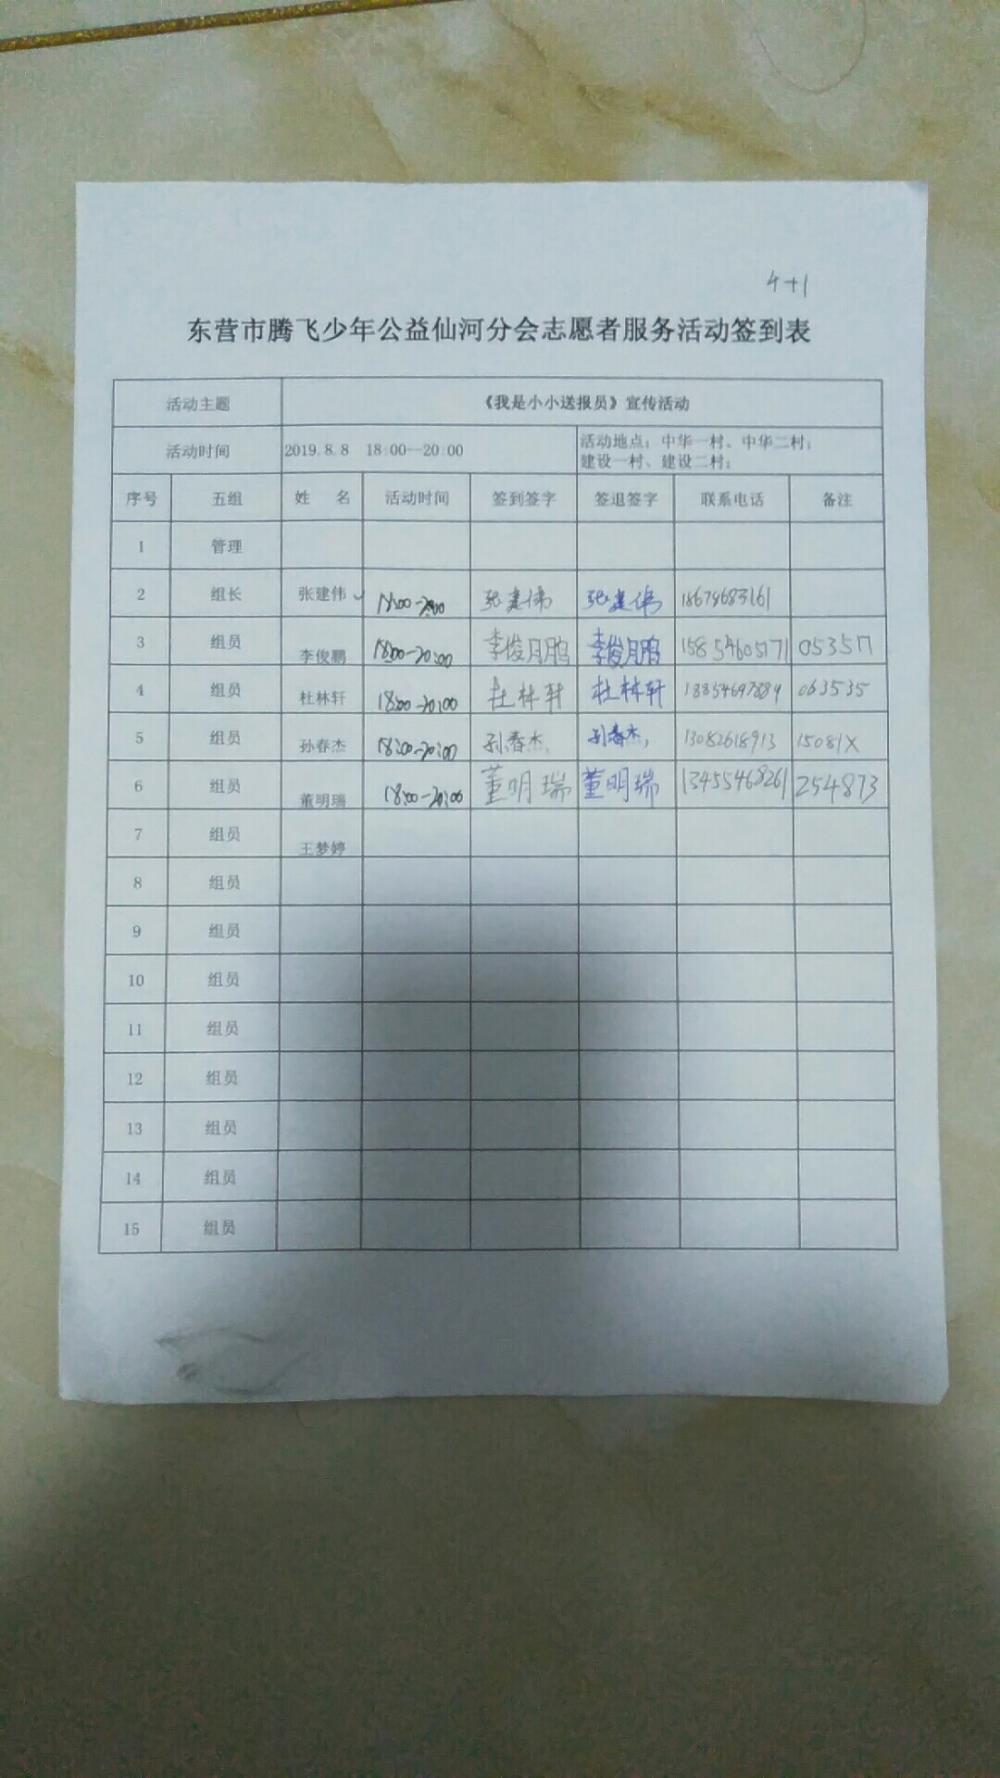 4+1
东营市腾飞少年公益仙河分会志愿者服务活动签到表
活动主题 《我是小小送报员》宣传活动
活动时间 2019.8.8 18:00--20:00 活动地点：中华一村、中华二村；
建设一村、建设二村；
序号 五组 姓 名 活动时间 签到签字 签退签字 联系电话 备注
1 管理
2 组长 张建伟✓ 18:00-20:00 张建伟 张建伟 18678683161
3 组员 李俊鹏 18:00-20:00 李俊鹏 李俊鹏 15854605171 053517
4 组员 杜林轩 18:00-20:00 杜林轩 杜林轩 18854697889 063535
5 组员 孙春杰 18:00-20:00 孙春杰 孙春杰 13082618913 15081X
6 组员 董明瑞 18:00-20:00 董明瑞 董明瑞 13455468261 254873
7 组员 王梦婷
8 组员
9 组员
10 组员
11 组员
12 组员
13 组员
14 组员
15 组员